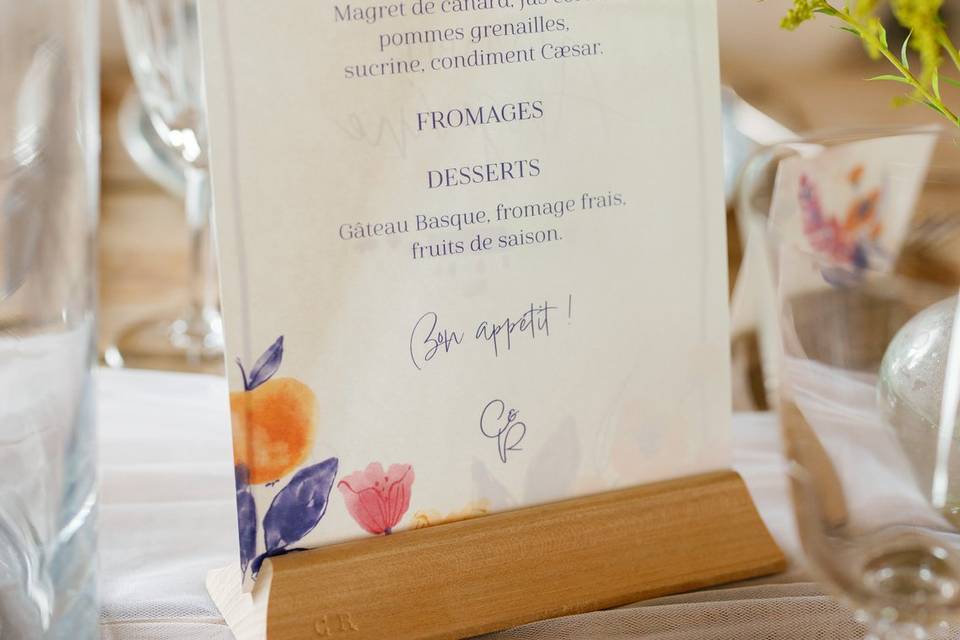 Magret de canard, jus
pommes grenailles,
sucrine, condiment Cæsar.
FROMAGES
DESSERTS
Gâteau Basque, fromage frais,
fruits de saison.
Bon appétit !
C&R